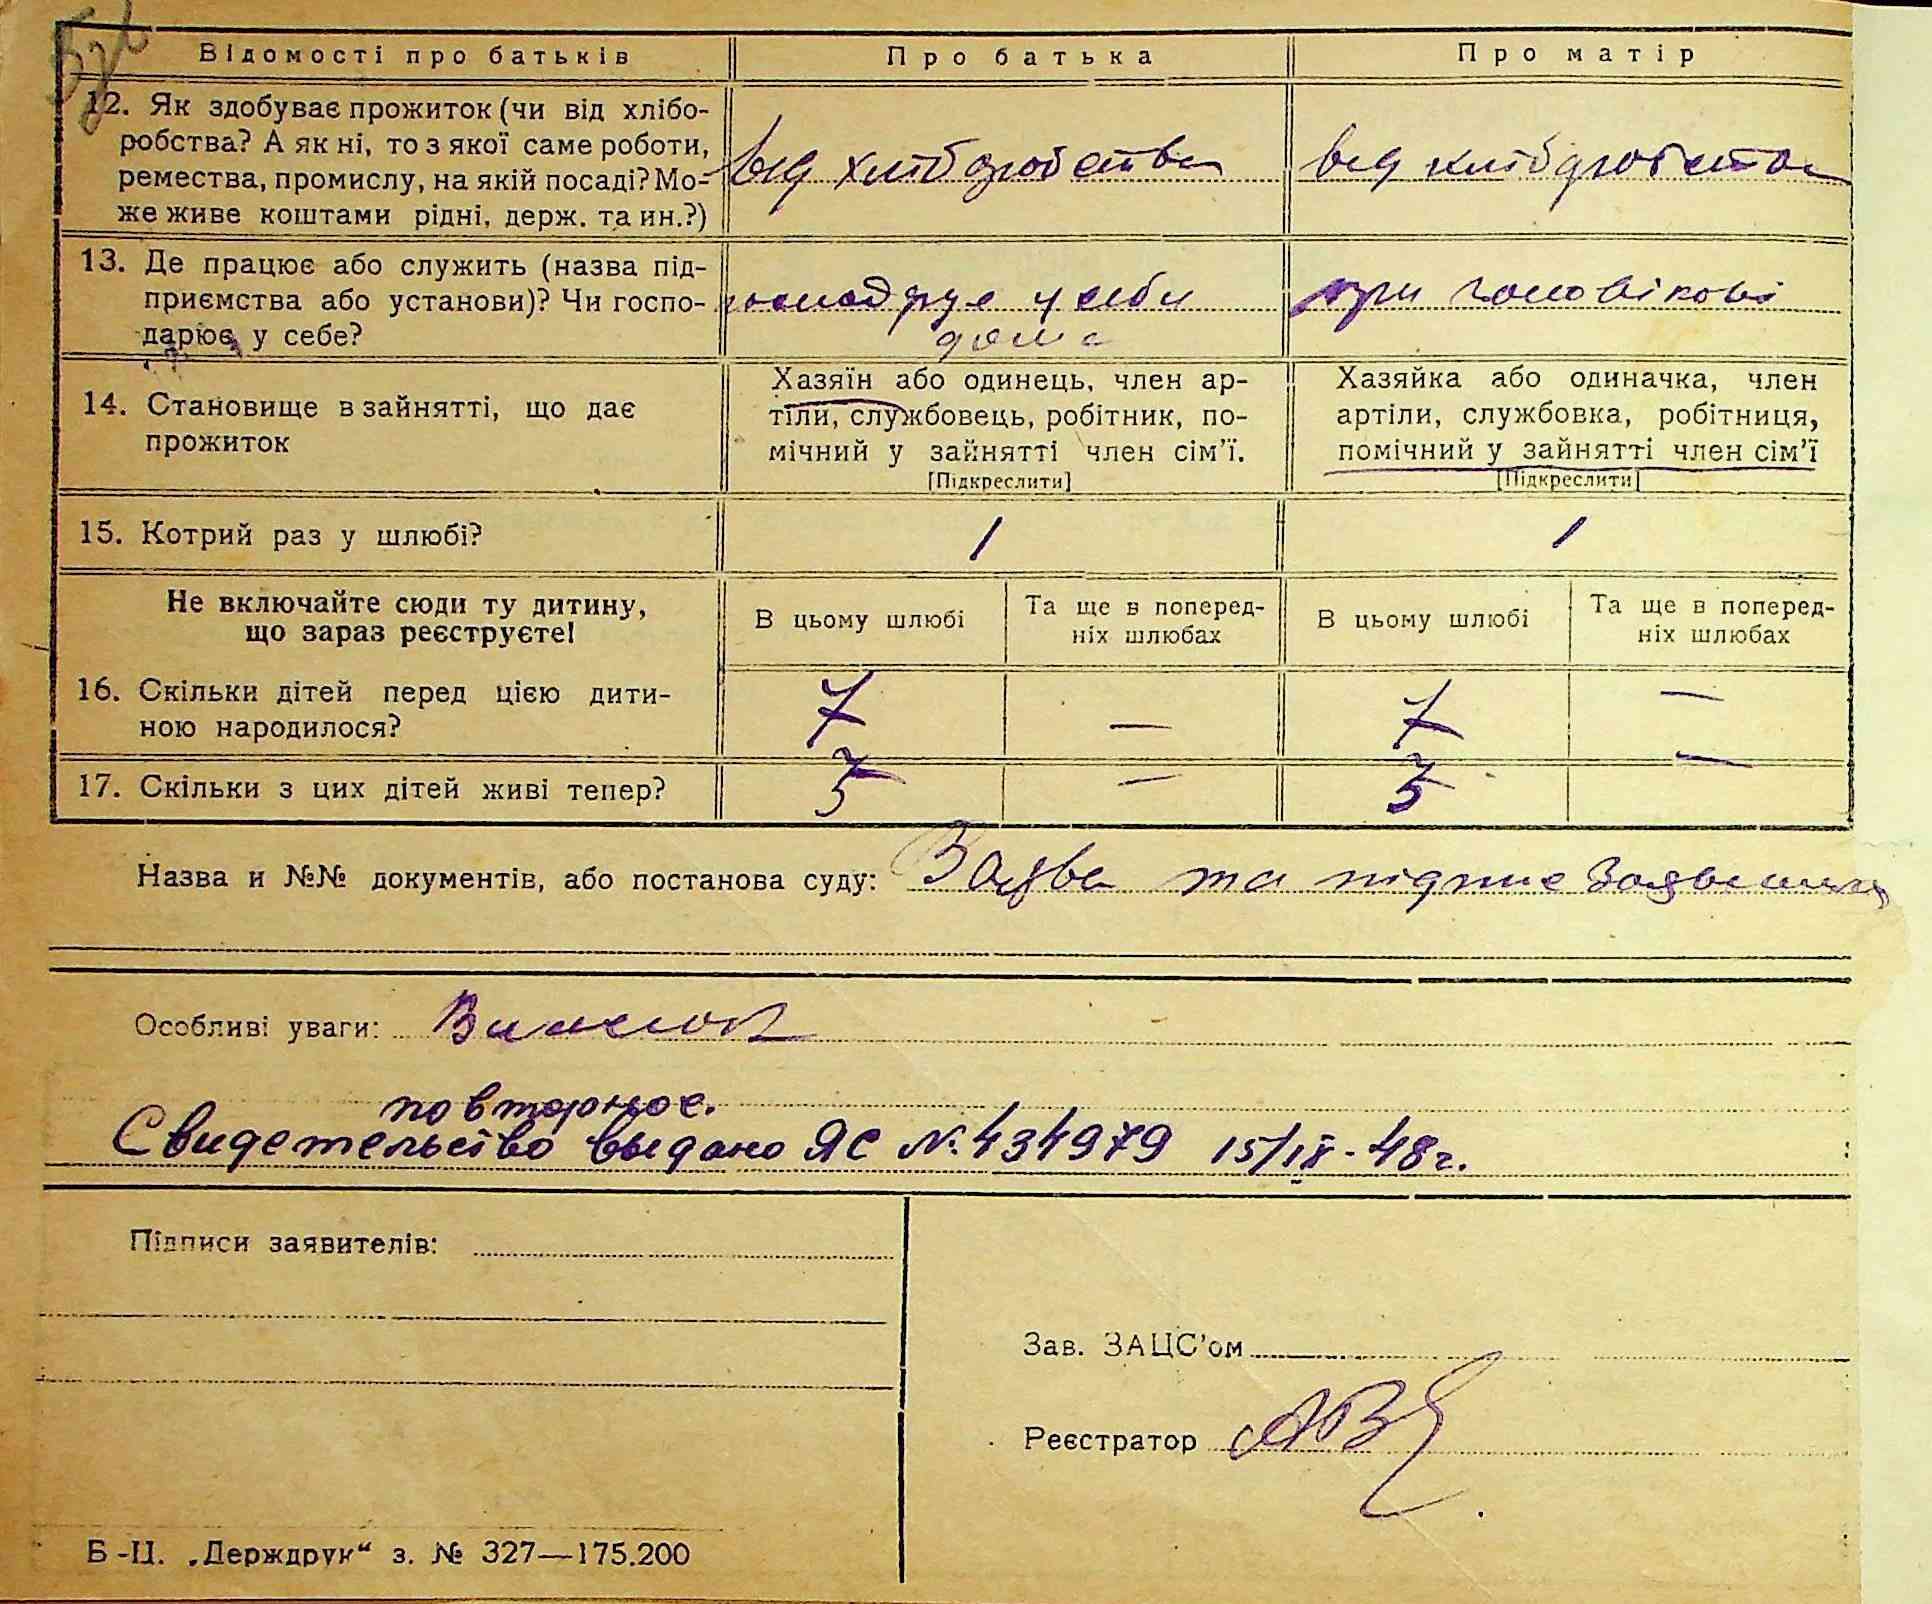 Відомості про батьків
Про батька
Про матір
12. Як здобуває прожиток (чи від хлібо-
робства? А як ні, то з якої саме роботи,
ремества, промислу, на якій посаді? Мо-
же живе коштами рідні, держ. та ин.?)
від хліборобства
від хліборобства
13. Де працює або служить (назва під-
приємства або установи)? Чи госпо-
дарює у себе?
господарує у себе
дома
при чоловікові
14. Становище в зайнятті, що дає
прожиток
Хазяїн або одинець, член ар-
тіли, службовець, робітник, по-
мічний у зайнятті член сім'ї.
[Підкреслити]
Хазяйка або одиначка, член
артіли, службовка, робітниця,
помічний у зайнятті член сім'ї
[Підкреслити]
15. Котрий раз у шлюбі?
1
1
Не включайте сюди ту дитину,
що зараз реєструєте!
В цьому шлюбі
Та ще в поперед-
ніх шлюбах
В цьому шлюбі
Та ще в поперед-
ніх шлюбах
16. Скільки дітей перед цією дити-
ною народилося?
7
—
7
—
17. Скільки з цих дітей живі тепер?
5
—
5
—
Назва и №№ документів, або постанова суду: Заява та підпис
Особливі уваги:
повторное.
Свидетельство выдано ЯС №434979 15/IX-48г.
Підписи заявителів:
Зав. ЗАЦС'ом
Реєстратор
Б-Ц. „Держдрук“ з. № 327—175.200